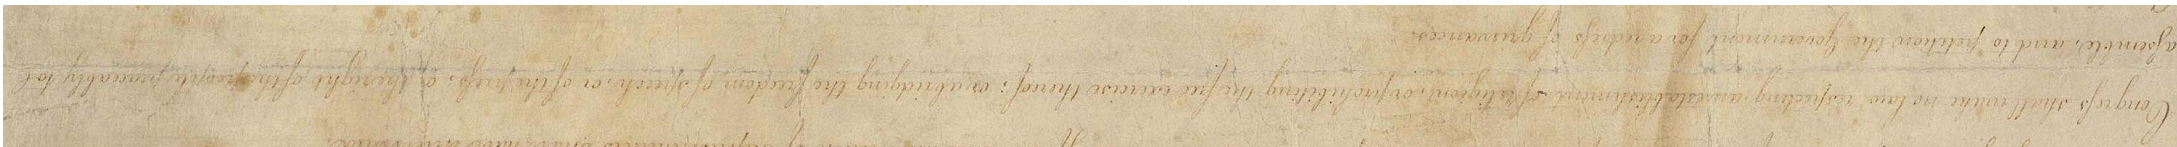 Congress shall make no law respecting an establishment of religion, or prohibiting the free exercise thereof; or abridging the freedom of speech, or of the press; or the right of the people peaceably to
assemble, and to petition the Government for a redress of grievances.